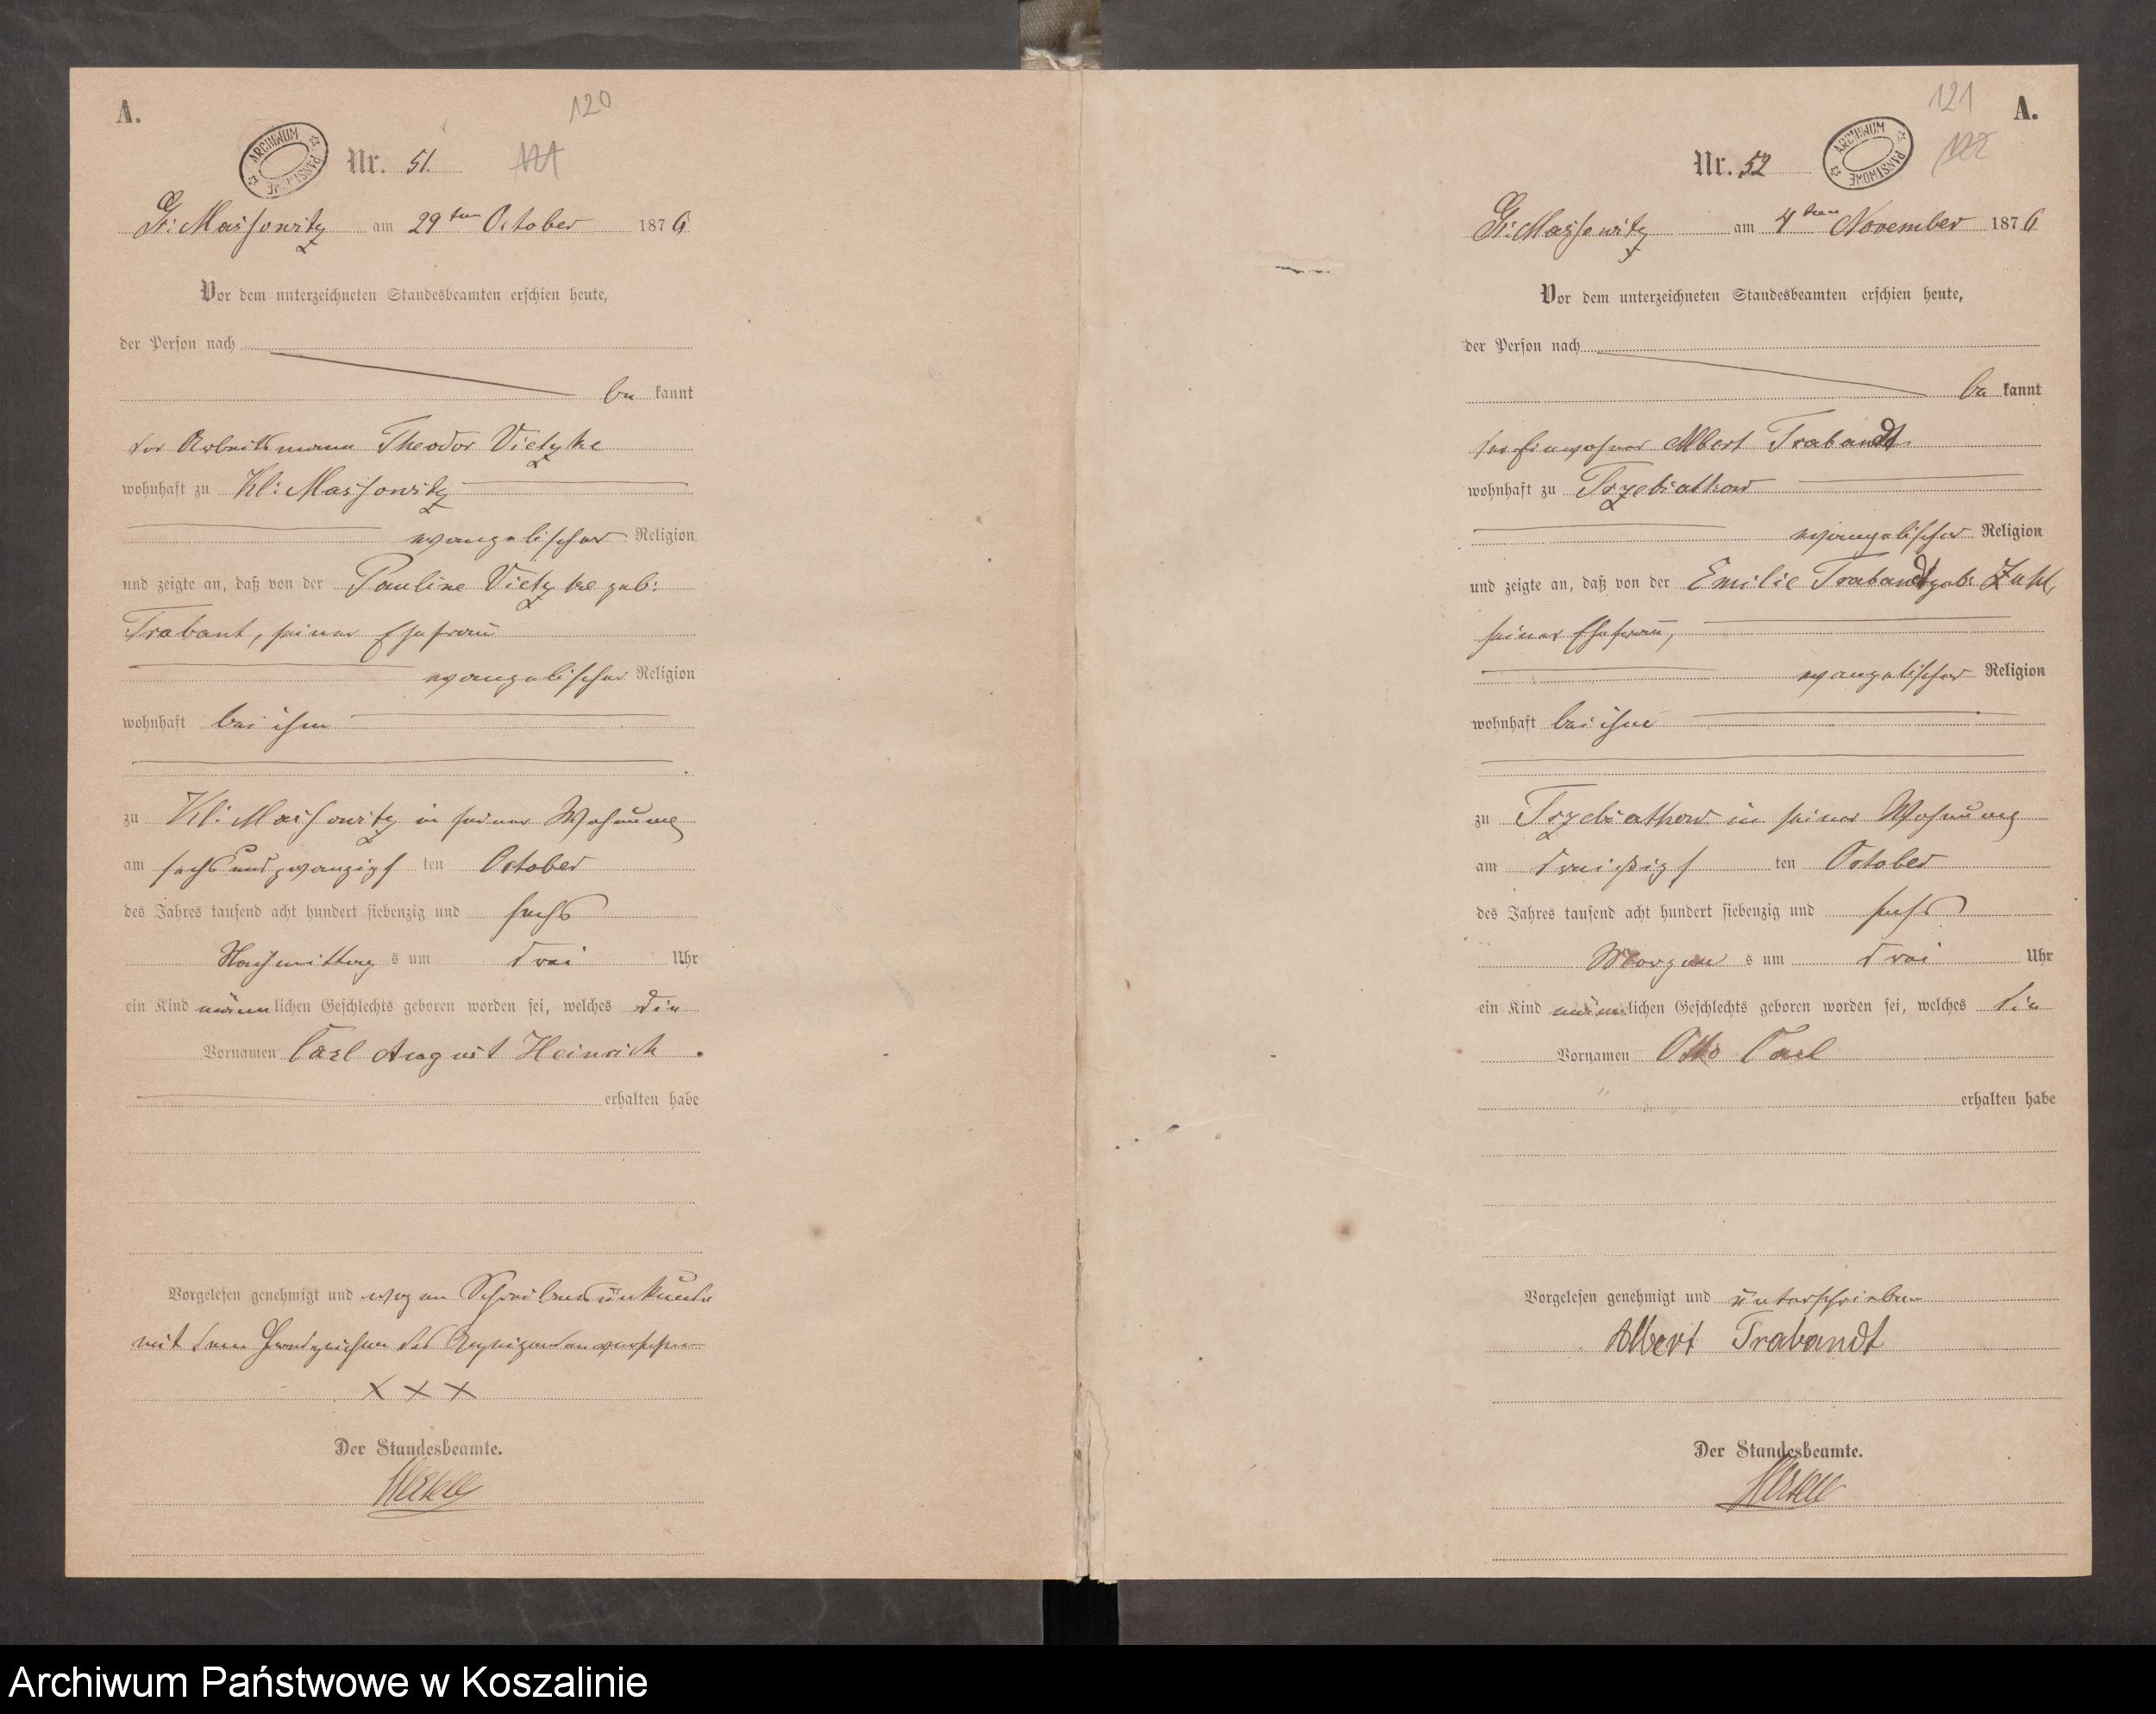 A.
120
ARCHIWUM PAŃSTWOWE
Nr. 51.
121
Gr: Massowitz am 29ten October 1876
Vor dem unterzeichneten Standesbeamten erschien heute,
der Person nach
be kannt
der Arbeitsmann Theodor Vietzke
wohnhaft zu Kl: Massowitz
evangelischer Religion
und zeigte an, daß von der Pauline Vietzke geb:
Trabant, seiner Ehefrau
evangelischer Religion
wohnhaft bei ihm
zu Kl: Massowitz in seiner Wohnung
am sechsundzwanzigs ten October
des Jahres tausend acht hundert siebenzig und sechs
Nachmittag s um drei Uhr
ein Kind männlichen Geschlechts geboren worden sei, welches die
Vornamen Carl August Heinrich
erhalten habe
Vorgelesen genehmigt und wegen Schreibensunkunde
mit dem Handzeichen des Anzeigenden versehen
XXX
Der Standesbeamte.
121
A.
Nr. 52
ARCHIWUM PAŃSTWOWE
122
Gr: Massowitz am 4ten November 1876
Vor dem unterzeichneten Standesbeamten erschien heute,
der Person nach
be kannt
der Einwohner Albert Trabandt
wohnhaft zu Trzebiatkow
evangelischer Religion
und zeigte an, daß von der Emilie Trabandt geb:
seiner Ehefrau,
evangelischer Religion
wohnhaft bei ihm
zu Trzebiatkow in seiner Wohnung
am dreißigs ten October
des Jahres tausend acht hundert siebenzig und sechs
Morgen s um drei Uhr
ein Kind männlichen Geschlechts geboren worden sei, welches die
Vornamen Otto Carl
erhalten habe
Vorgelesen genehmigt und unterschrieben
Albert Trabandt
Der Standesbeamte.
Archiwum Państwowe w Koszalinie